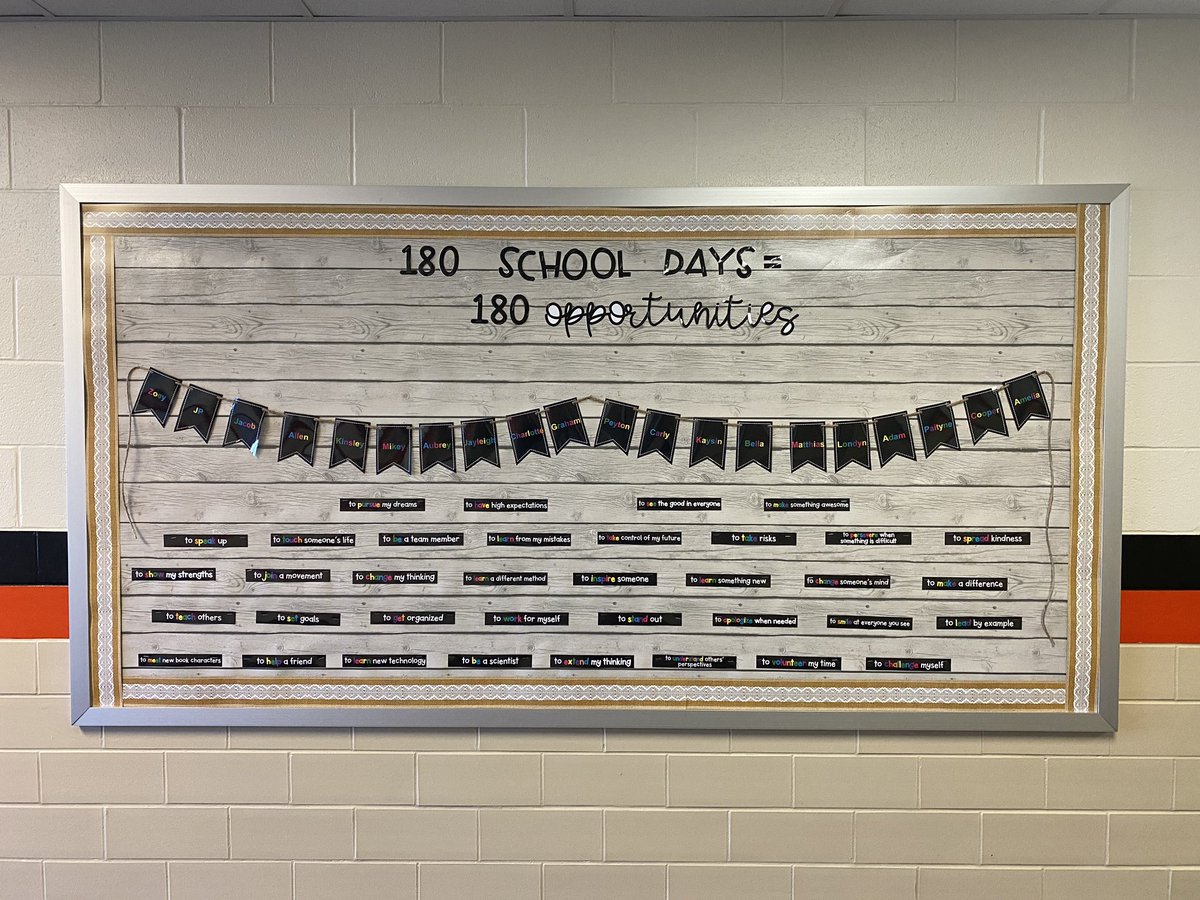 180 SCHOOL DAYS =
180 opportunities
Zoey JP Jacob Allen Kinsley Mikey Aubrey Jayleigh Charlotte Graham Peyton Carly Kaysin Bella Matthias Londyn Adam Paityne Cooper Amelia
to pursue my dreams
to have high expectations
to see the good in everyone
to make something awesome
to speak up
to touch someone's life
to be a team member
to learn from my mistakes
to take control of my future
to take risks
to persevere when
something is difficult
to spread kindness
to show my strengths
to join a movement
to change my thinking
to learn a different method
to inspire someone
to learn something new
to change someone's mind
to make a difference
to teach others
to set goals
to get organized
to work for myself
to stand out
to apologize when needed
to smile at everyone you see
to lead by example
to meet new book characters
to help a friend
to learn new technology
to be a scientist
to extend my thinking
to understand others'
perspectives
to volunteer my time
to challenge myself